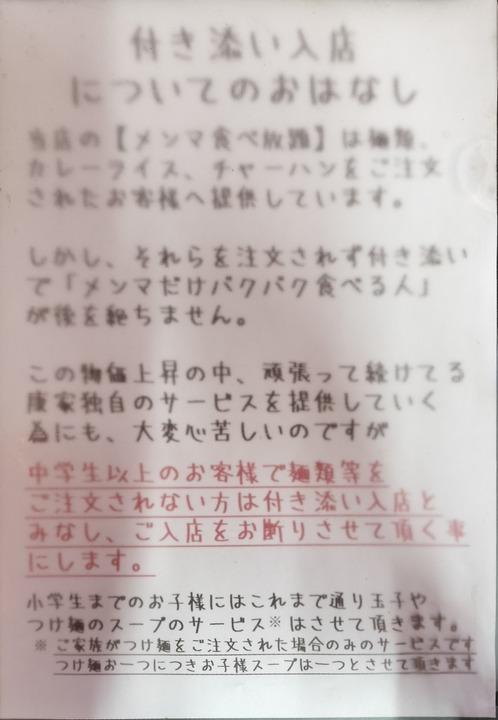 付き添い入店
についてのおはなし
当店の【メンマ食べ放題】は麺類、
カレーライス、チャーハンをご注文
されたお客様へ提供しています。
しかし、それらを注文されず付き添い
で「メンマだけパクパク食べる人」
が後を絶ちません。
この物価上昇の中、頑張って続けてる
康家独自のサービスを提供していく
為にも、大変心苦しいのですが
中学生以上のお客様で麺類等を
ご注文されない方は付き添い入店と
みなし、ご入店をお断りさせて頂く事
にします。
小学生までのお子様にはこれまで通り玉子や
つけ麺のスープのサービス※はさせて頂きます。
※ ご家族がつけ麺をご注文された場合のみのサービスです
つけ麺お一つにつきお子様スープは一つとさせて頂きます